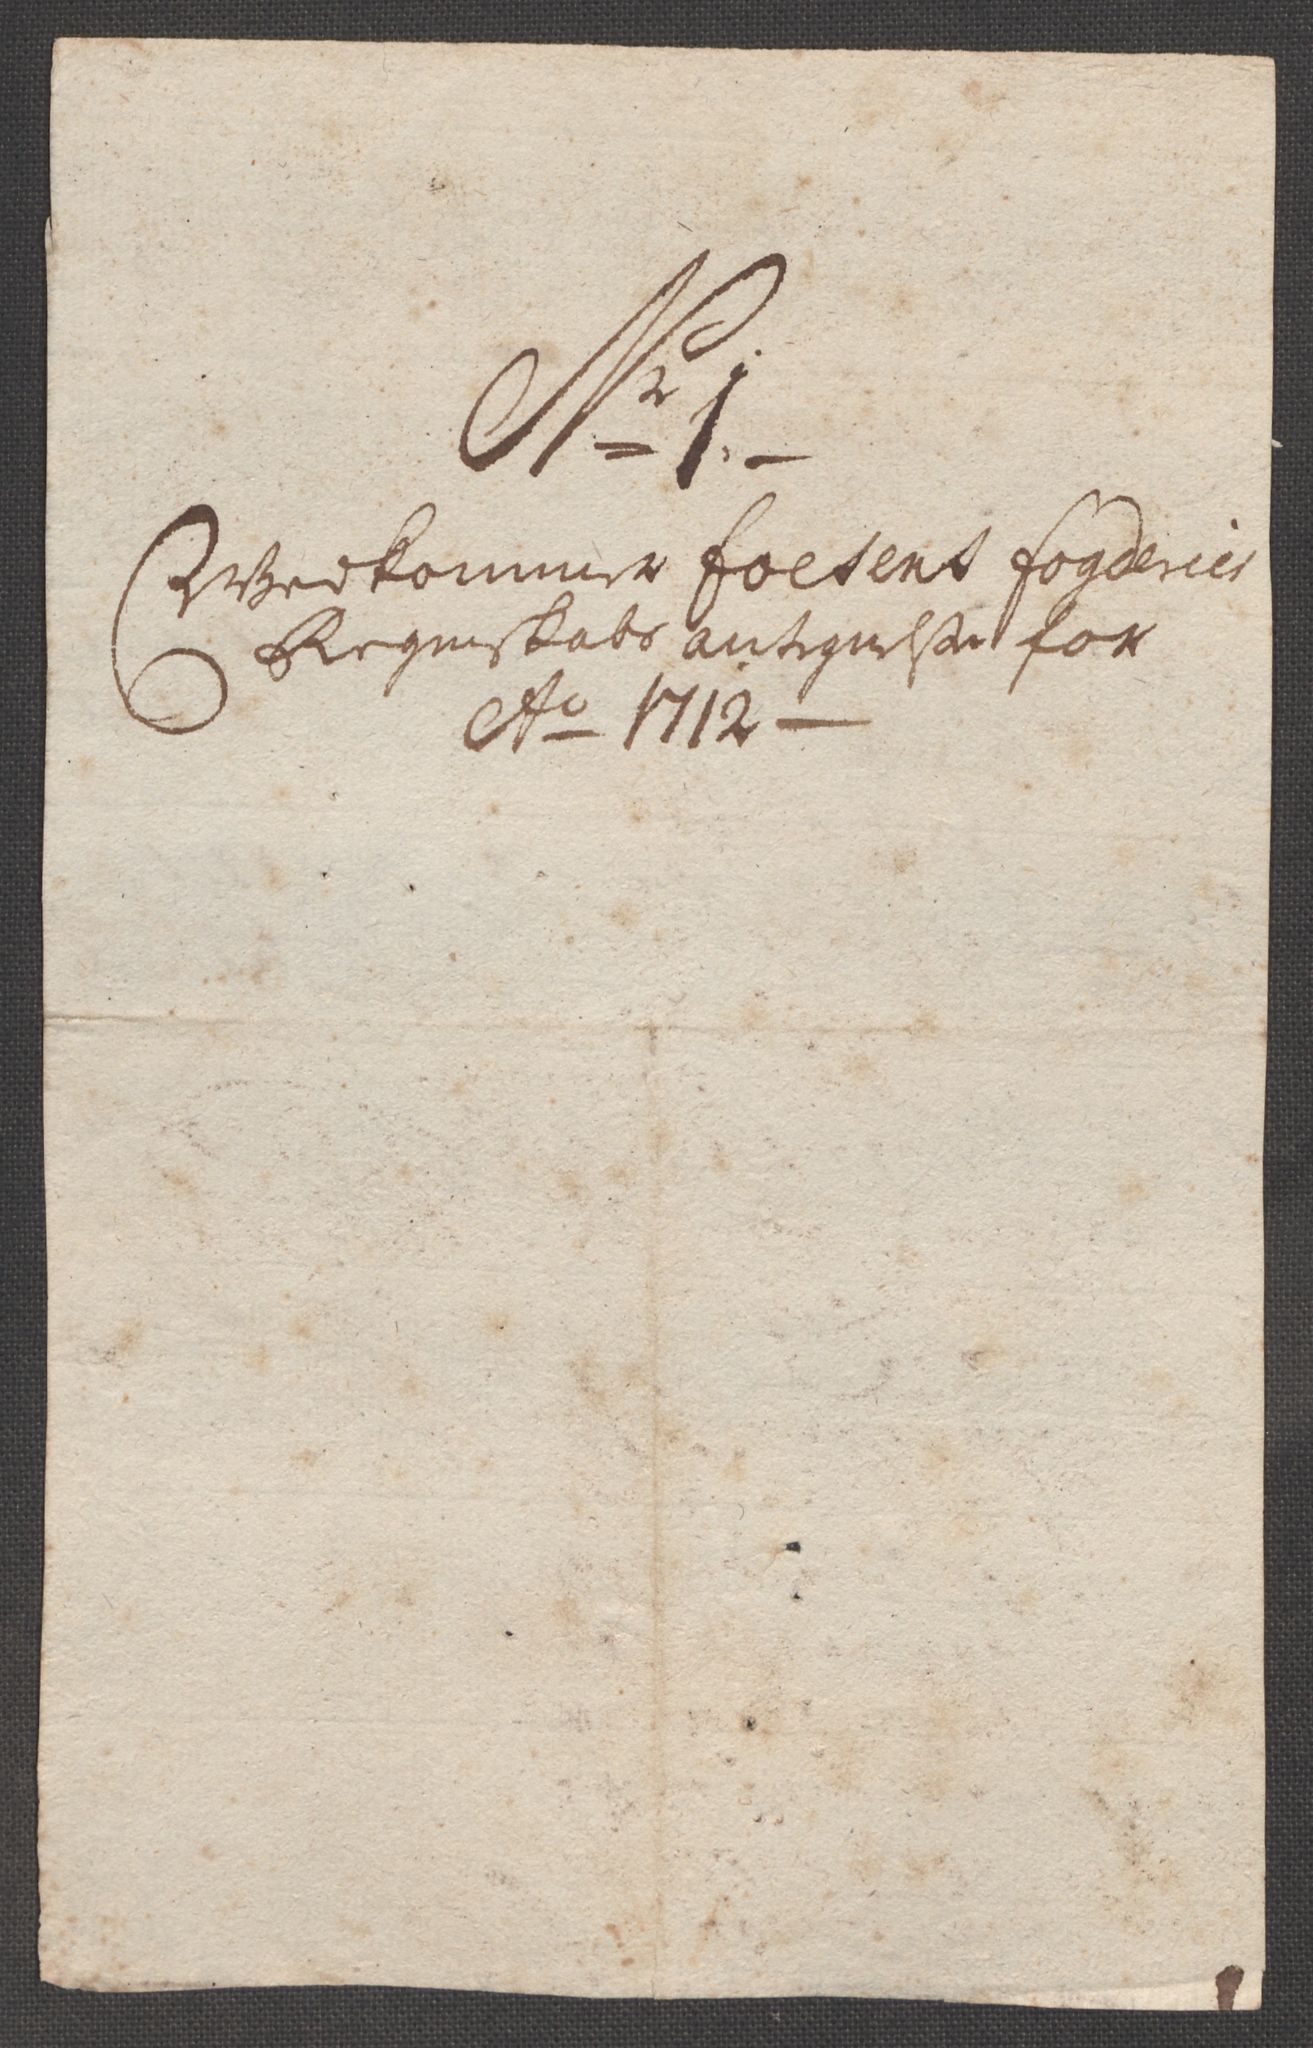 Nr 1.
Vedkommer Foesens fogderies
Regenskabs antegnelser for
Ao 1712